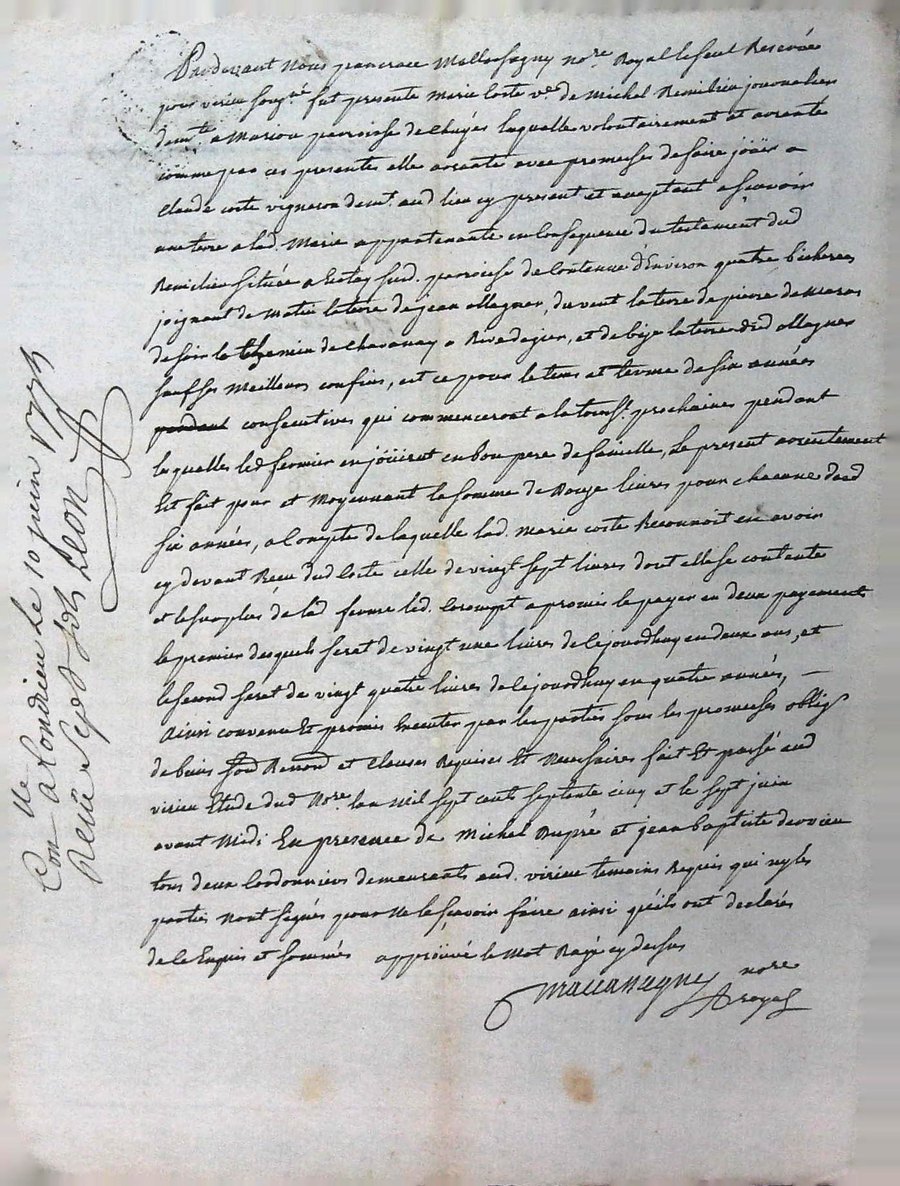 Pardevant Nous pancrace Mallassagny no.re Royal le seul Reservée
pour virieu soug.né fut presente Marie Coste v.e de Michel Remilieu journalier
dem.te a Marson parroisse de Chuyés laquelle volontairement at arenté
comme par ces presentes elle arente avec promesses de faire joüir a
Claude coste vigneron dem.t aud lieu cy present et aceptant a scavoir
une terre a lad. Marie appartenante en Consequence du testament dud
Remilieu située a sud. parroisse de Contenue d'Environ quatre bicherees
joignant de Matin la terre de jean Magner, du vent la terre de pierre
de soir le Chemin de Chavanay a Rivedegier, et de bize la terre dud Magner
sauf ses Meilleurs confins, est ce pour le tems et terme de six années
pendant consecutives qui commenceront a la touss.t prochaines pendant
laquelles led fermier en joüirat en bon pere de famille, le present arrentement
Est fait pour et Moyennant la somme de Douze livres pour chacunne desd
six années, a Compte de laquelle lad. Marie coste Reconnoit en avoir
cy devant Receu dud Coste celle de vingt sept livres dont elle se contente
et le surplus de lad ferme led. Coste a promis le payer en deux payements
le premier desquels serat de vingt une livres de cejourdhuy en deux ans, et
le second serat de vingt quatre livres de cejourdhuy en quatre années, —
Ainsi convenu Et promis Executer par les parties sous les promesses oblig.
de biens Renond et Clauses Requises Et Necessaires fait Et passé aud
virieu Etude dud No.re lan Mil sept cents septente cinq et le sept juin
avant Midi En presence de Michel Dupré et jean baptiste dervieu
tous deux Cordonniers demeurants aud. virieu temoins Requis qui ny les
parties Nont signés pour Ne le scavoir faire ainsi qu'ils ont declarés
de ce Enquis et sommés approüvé le Mot Rayé cy dessus
nore
royal
Con a Condrieu le 10 juin 1775
Receu Sept sols
Leon